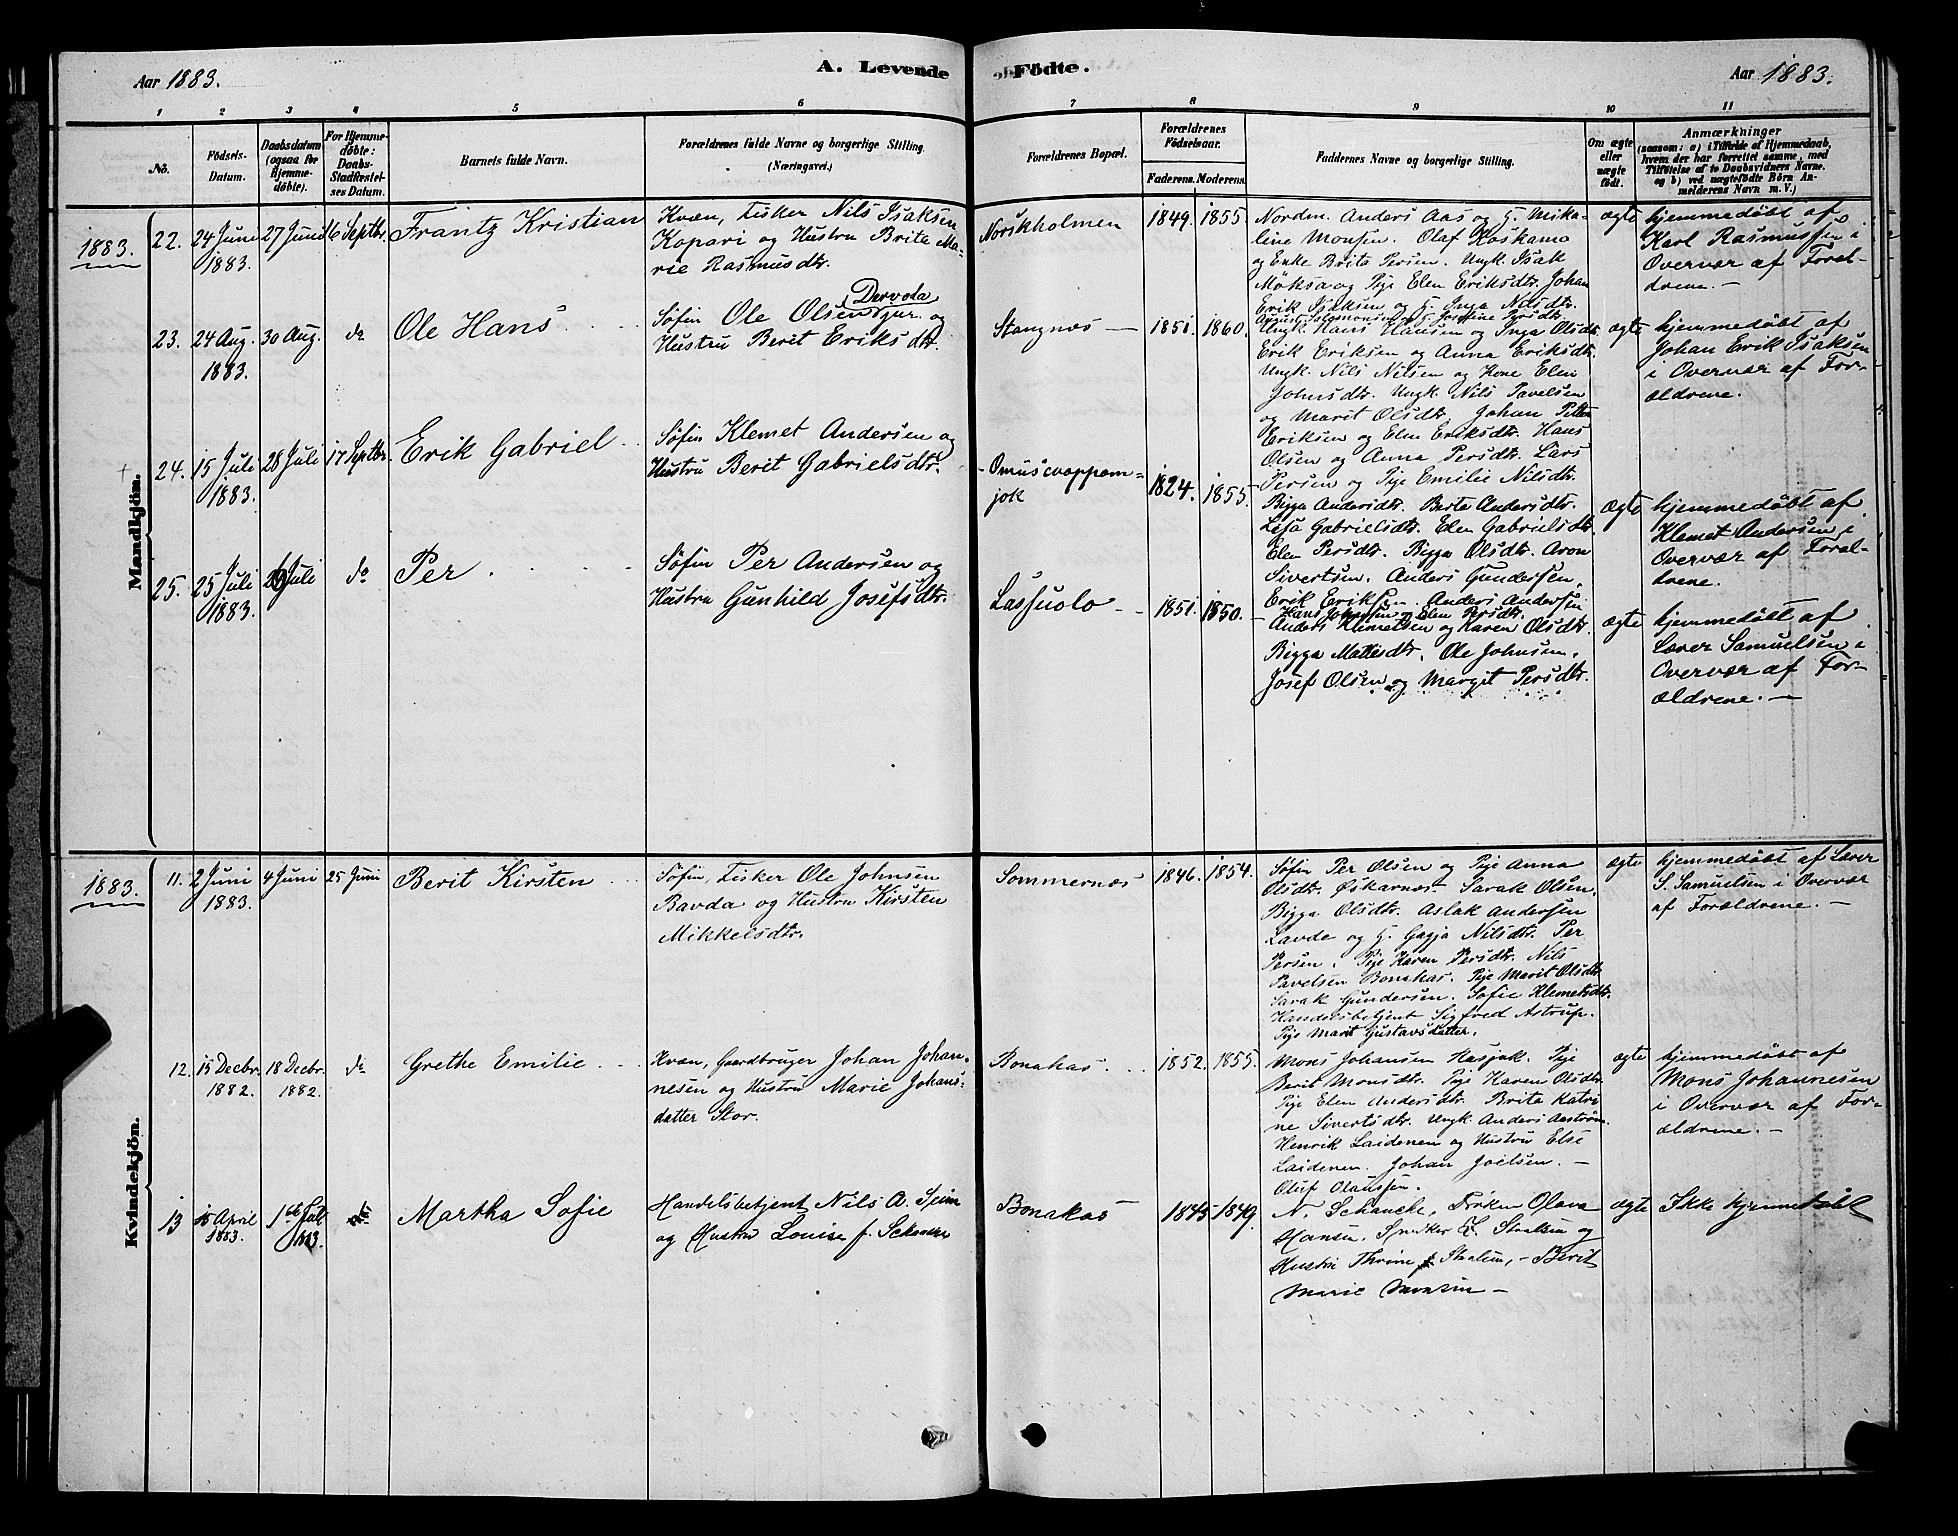 Aar 1883.
A. Levende
Fødte.
Aar 1883.
1 2 3 4 5 6 7 8 9 10 11
No.
Fødsels-
Datum.
Daabsdatum
(ogsaa for
Hjemme-
døbte).
For Hjemme-
døbte:
Daabs-
Stadfæstel-
ses Datum.
Barnets fulde Navn.
Forældrenes fulde Navne og borgerlige Stilling.
(Næringsvei.)
Forældrenes Bopæl.
Forældrenes
Fødselsaar.
Faderens. Moderens.
Faddernes Navne og borgerlige Stilling.
Om ægte
eller
uægte
født.
Anmærkninger
(saasom: a) i Tilfælde af Hjemmedaab,
hvem der har forrettet samme, med
Tilføielse af to Daabsvidners Navne,
og b) ved uægtefødte Børn An-
melderens Navn m. V.)
Mandkjön.
1883.
22.
24 Juni
1883.
27 Juni
16 Septbr.
Frantz Kristian
Kvæn, Fisker Nils Isaksen
Kopari og Hustru Brita Ma-
rie Rasmusdtr.
Norskholmen
1849. 1855
Nordm. Anders Aas og H. Mika-
line Monsen. Olaf Koskamo
og Enke Brita Persen. Ungk. Isak
Möksa og Pige Elen Eriksdtr. Johan
Erik Isaksen og H. Inga Nilsdtr.
August Salomonsen og H. Josefine Persdtr.
ægte
hjemmedøbt af
Karl Rasmussen i
Overvær af Foræl-
drene. —
23.
24 Aug.
1883.
30 Aug.
do
Ole Hans
Dervoda
Søfin Ole Olsen Sjur. og
Hustru Berit Eriksdtr.
Stangnæs —
1851. 1860.
Ungk. Hans Hansen og Inga Olsdtr.
Erik Eriksen og Anna Eriksdtr.
Ungk. Nils Nilsen og Kone Elen
Johnsdtr. Ungk. Nils Pavelsen
og Marit Olsdtr. Johan Petter
Eriksen og Elen Eriksdtr. Hans
Olsen og Anna Persdtr. Lars
Persen og Pige Emilie Nilsdtr.
ægte
hjemmedøbt af
Johan Erik Isaksen
i Overvær af For-
ældrene.
24.
15 Juli
1883.
28 Juli
17 Septbr.
Erik Gabriel
Søfin Klemet Andersen og
Hustru Berit Gabrielsdtr.
Omuscvappom-
jok
1824. 1855.
Bigga Andersdtr. Berta Andersdtr.
Lisa Gabrielsdtr. Elen Gabrielsdtr.
Elen Persdtr. Bigga Olsdtr. Aron
Sivertsen. Anders Gundersen.
Erik Eriksen. Anders Andersen
ægte
hjemmedøbt af
Klemet Andersen i
Overvær af Foræl-
drene.
25.
25 Juli
1883.
29 Juli
do
Per
Søfin Per Andersen og
Hustru Gunhild Josefsdtr.
Lassuolo
1851. 1850.
Hans Johansen og Elen Persdtr.
Anders Klemetsen og Karen Olsdtr.
Bigga Mattesdtr. Ole Johnsen.
Josef Olsen og Margit Persdtr.
ægte
hjemmedøbt af
Laver Samuelsen i
Overvær af For-
ældrene. —
Kvindekjön.
1883.
11.
2 Juni
1883.
4 Juni
25 Juni
Berit Kirsten
Søfin, Fisker Ole Johnsen
Bavda og Hustru Kirsten
Mikkelsdtr.
Sommernæs
1846. 1854.
Søfin Per Olsen og Pige Anna
Olsdtr. Øskarnæs. Sarak Olsen.
Bigga Olsdtr. Aslak Andersen
Lavde og H. Gagja Nilsdtr. Per
Persen. Pige Karen Persdtr. Nils
Pavelsen Bonakas. Pige Marit Olsdtr.
Sarak Gundersen. Sofie Klemetsdtr.
Handelsbetjent Sigfred Astrup.
Pige Marit Gustavsdatter.
ægte
hjemmedøbt af Laver
S. Samuelsen i Overvær
af Forældrene. —
12.
15 Decbr.
1882.
18 Decbr.
1882.
do
Grethe Emilie
Kvæn, Gaardbruger Johan Johan-
nesen og Hustru Marie Johans-
datter Stor.
Bonakas
1852. 1855.
Mons Johansen Hasjok. Pige
Berit Monsdtr. Pige Karen Olsdtr.
Pige Elen Andersdtr. Brita Katri-
ne Sivertsdtr. Ungk. Anders Aaström.
Henrik Laidenen og Hustru Else
Laidenen. Johan Joelsen. —
Oluf Olaussen.
ægte
hjemmedøbt af
Mons Johannesen
i Overvær af For-
ældrene. —
13
15 April
1883
1ste Juli
1883.
Martha Sofie
Handelsbetjent Nils A. Seim
og Hustru Louise f. Schanche
Bonakas
1845 1849.
N. Schanche, Frøken Olava
Hansen. Snedker E. Staalsen og
Hustru Thrine Staalsen, — Berit
Marie Monsen —
ægte
Ikke hjemmedøbt